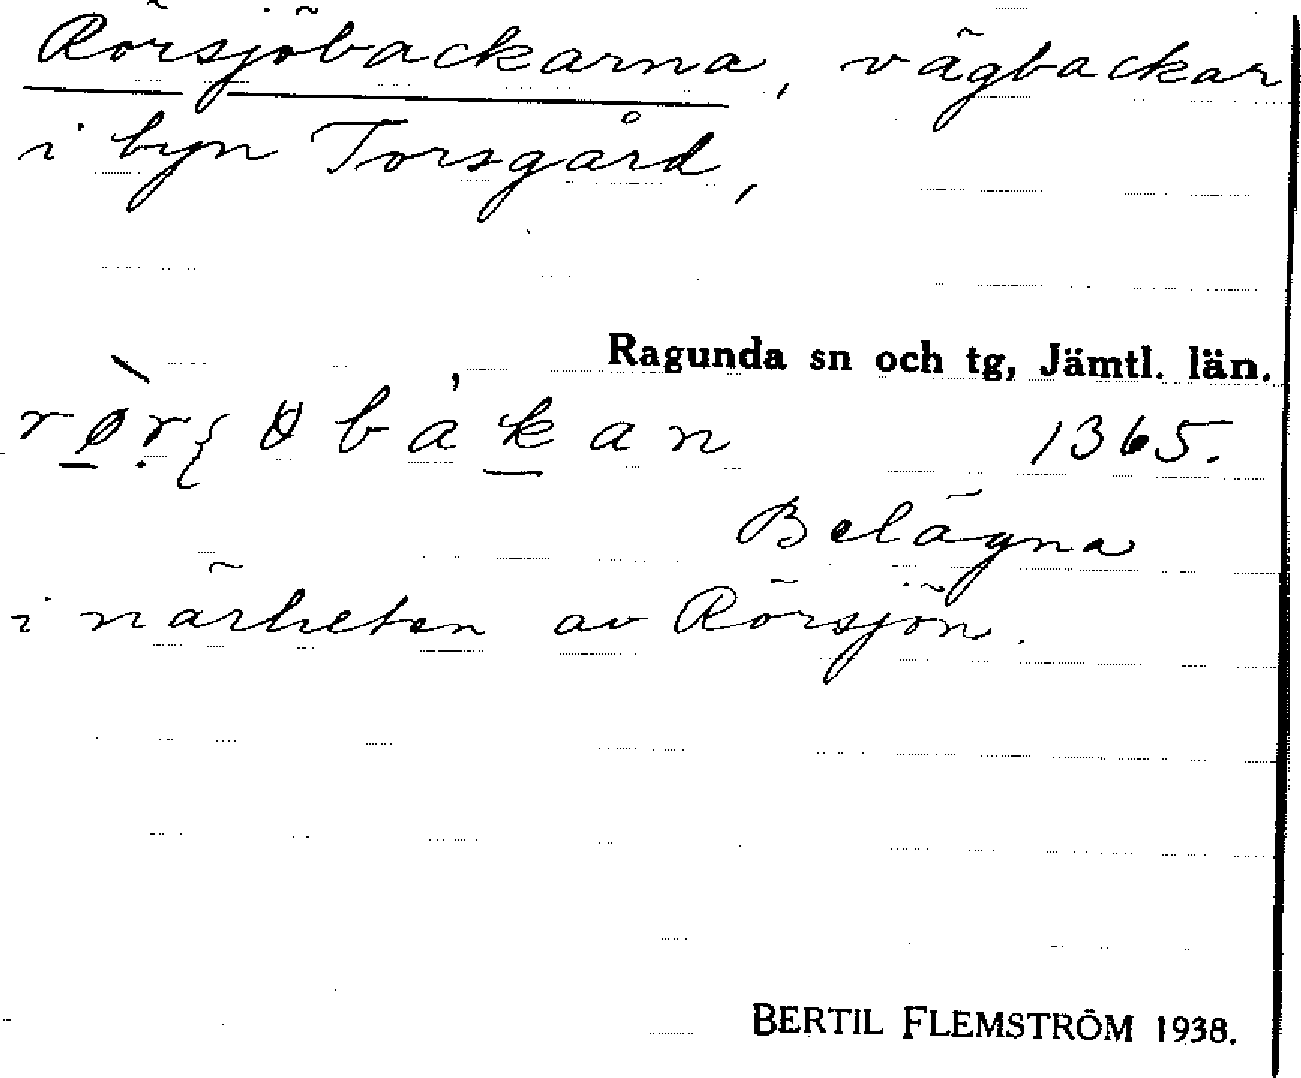 Rörsjöbackarna, vägbackar
i byn Torsgård,
Ragunda sn och tg, Jämtl. län.
1365.
Belägna
i närheten av Rörsjön.
BERTIL FLEMSTRÖM 1938.